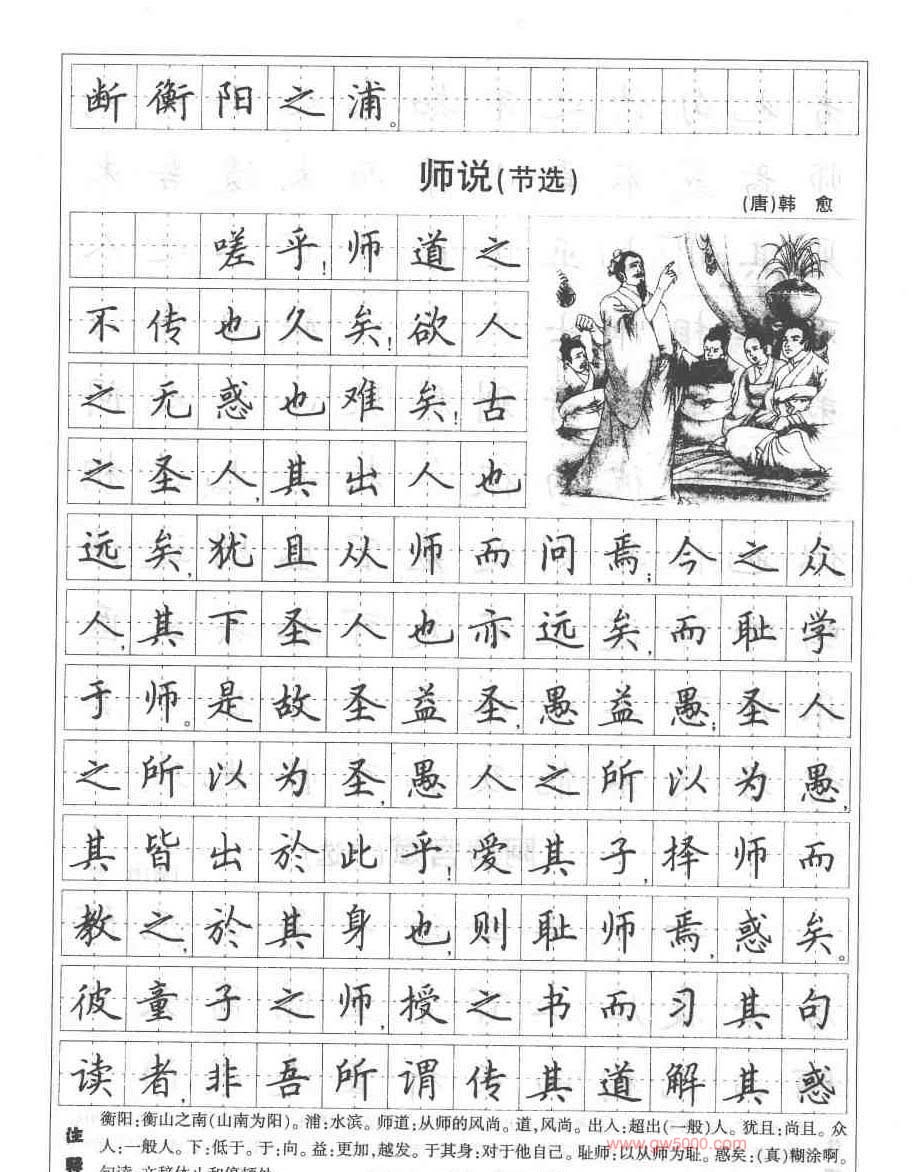 断衡阳之浦。
师说(节选)
(唐)韩 愈
嗟乎!师道之
不传也久矣!欲人
之无惑也难矣!古
之圣人,其出人也
远矣,犹且从师而问焉;今之众
人,其下圣人也亦远矣,而耻学
于师。是故圣益圣,愚益愚;圣人
之所以为圣,愚人之所以为愚,
其皆出於此乎!爱其子,择师而
教之,於其身也,则耻师焉,惑矣。
彼童子之师,授之书而习其句
读者,非吾所谓传其道解其惑
注释
衡阳:衡山之南(山南为阳)。浦:水滨。师道:从师的风尚。道,风尚。出人:超出(一般)人。犹且:尚且。众
人:一般人。下:低于。于:向。益:更加,越发。于其身:对于他自己。耻师:以从师为耻。惑矣:(真)糊涂啊。
www.gw5000.com